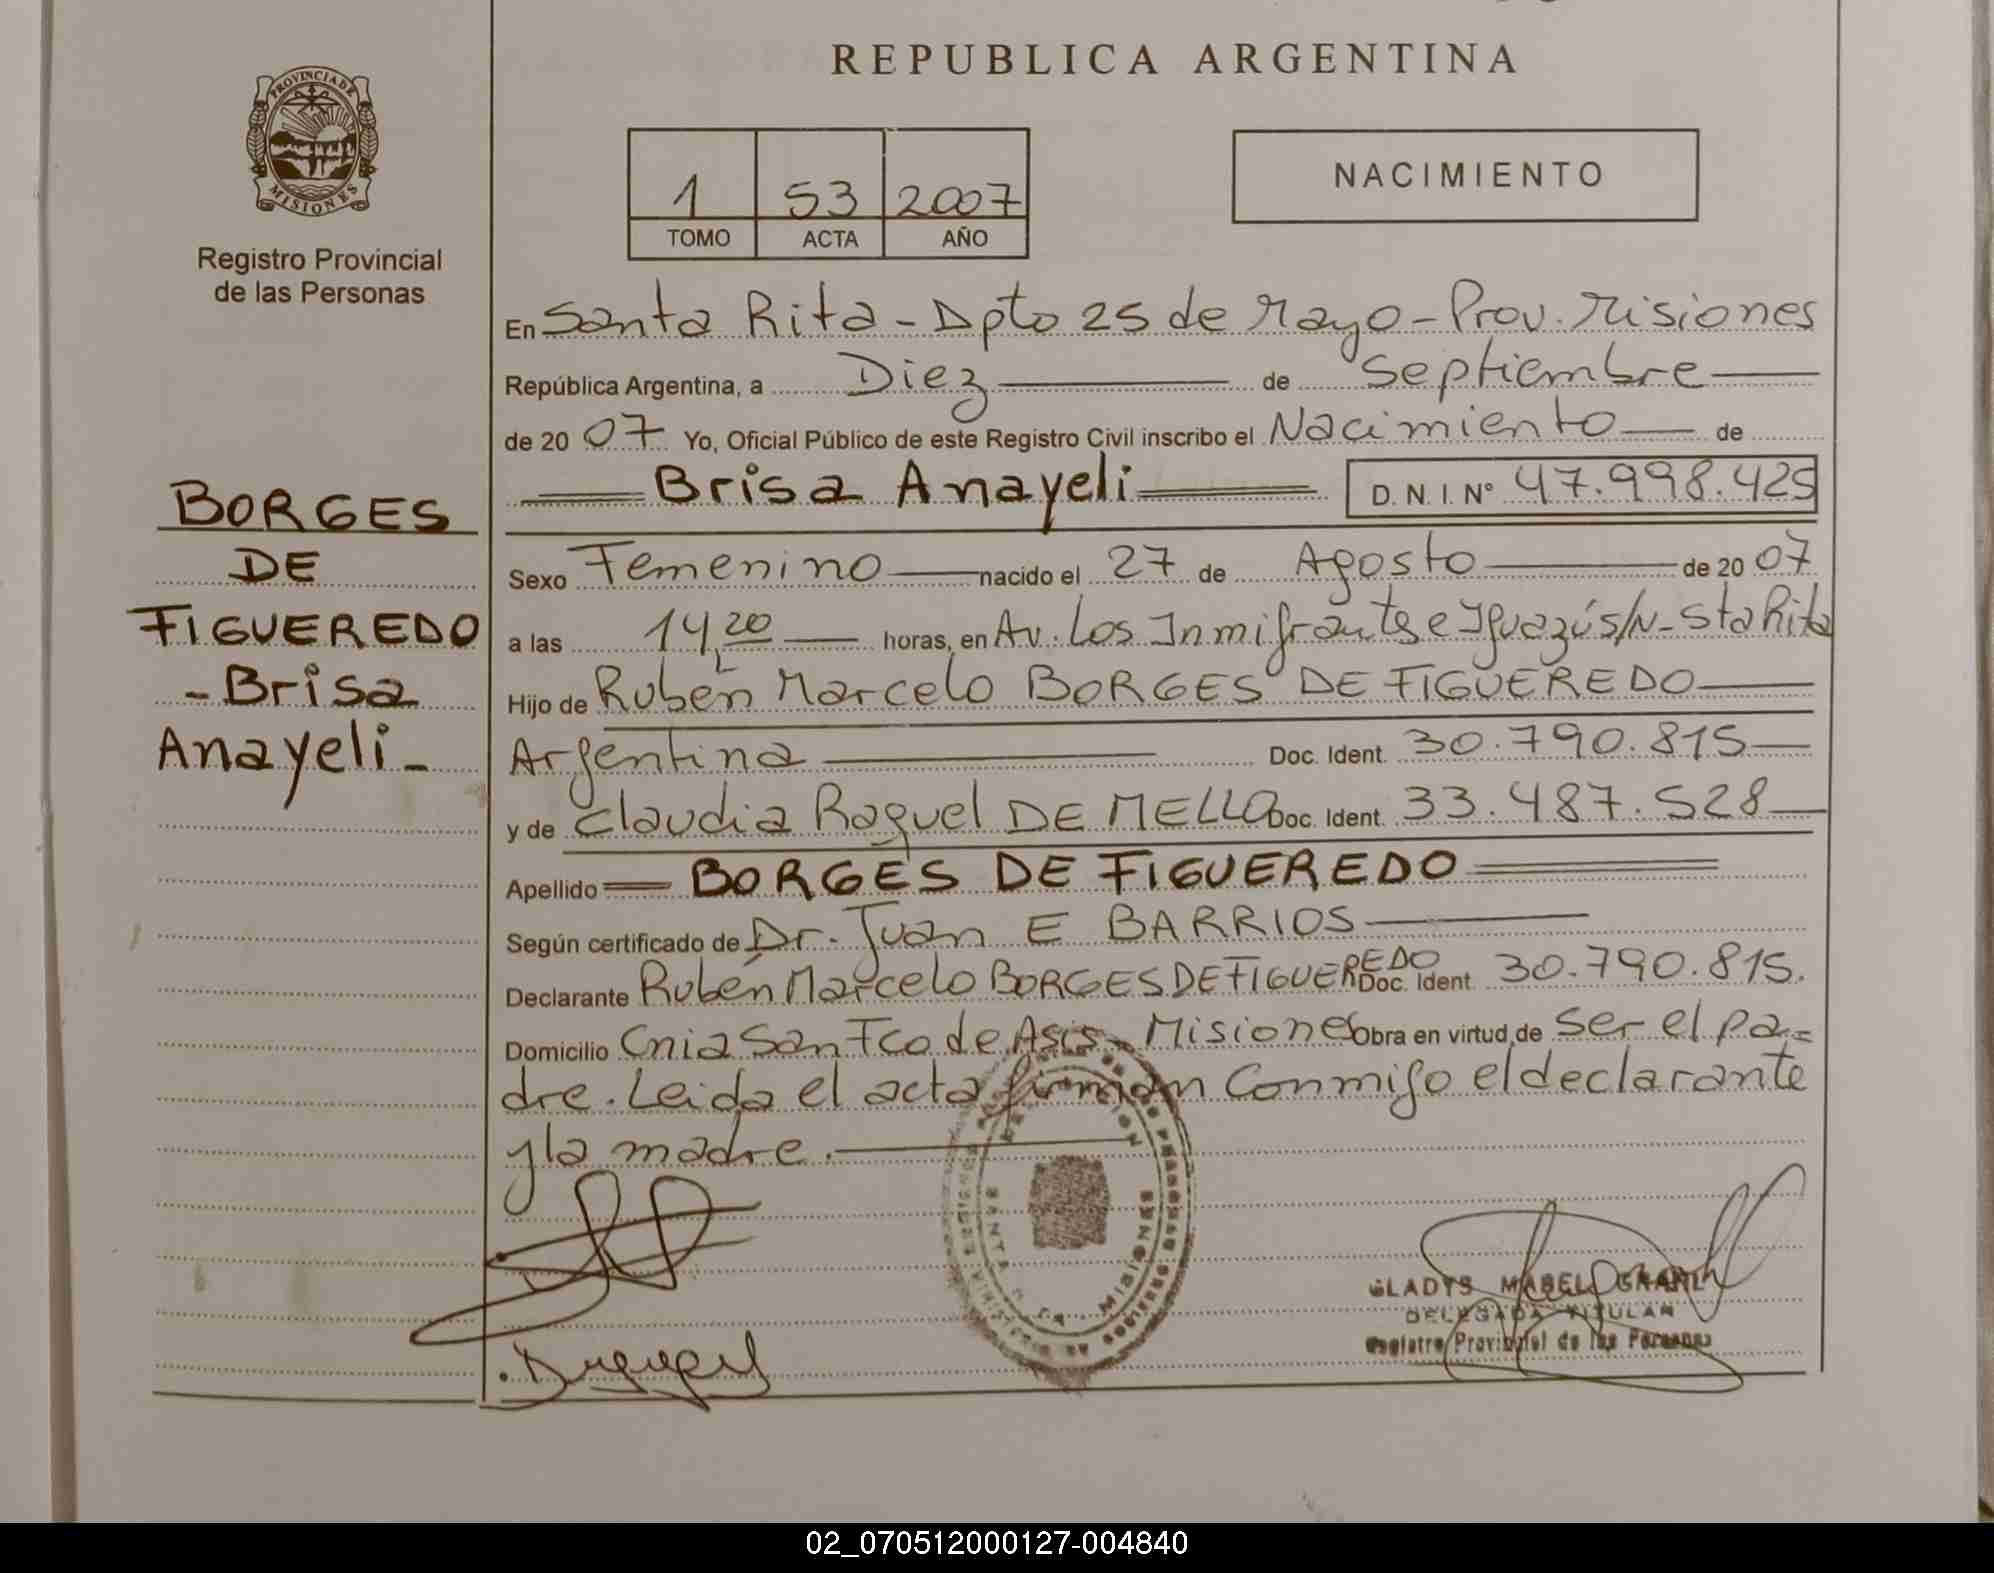 REPUBLICA ARGENTINA
PROVINCIA DE
MISIONES
Registro Provincial
de las Personas
1 53 2007
TOMO ACTA AÑO
NACIMIENTO
En Santa Rita - Dpto 25 de Mayo - Prov. Misiones
República Argentina, a Diez de Septiembre
de 2007 Yo, Oficial Público de este Registro Civil inscribo el Nacimiento de
Brisa Anayeli D.N.I. Nº 47.998.425
Sexo Femenino nacido el 27 de Agosto de 2007
a las 14,20 horas, en Av. Los Inmigrantes e Iguazú s/N - Sta Rita
Hijo de Rubén Marcelo BORGES DE FIGUEREDO
Argentina Doc. Ident. 30.790.815
y de Claudia Raquel DE MELLO Doc. Ident. 33.487.528
Apellido BORGES DE FIGUEREDO
Según certificado de Dr. Juan E BARRIOS
Declarante Rubén Marcelo BORGES DE FIGUEREDO Doc. Ident. 30.790.815.
Domicilio Cnia San Fco de Asis - Misiones Obra en virtud de ser el pa=
dre. Leida el acta firman conmigo el declarante
y la madre.
BORGES
DE
FIGUEREDO
- Brisa
Anayeli -
SANTA
MISIONES
GLADYS MABEL
DELEGADA TITULAR
Registro Provincial de las Personas
02_070512000127-004840